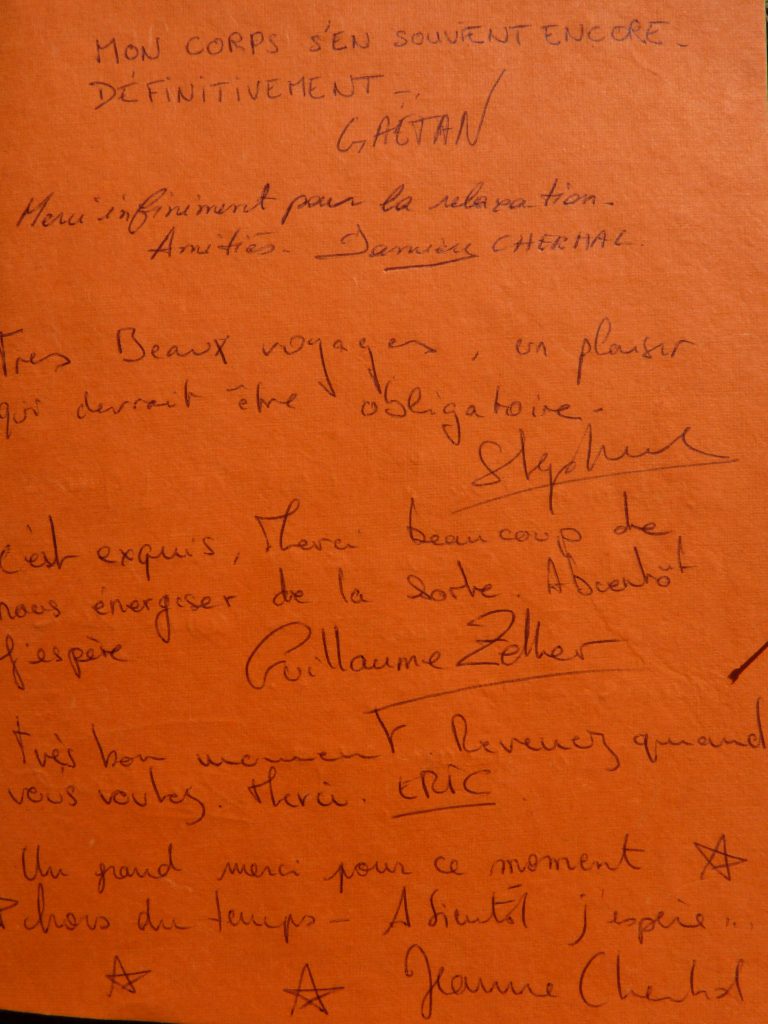 MON CORPS S'EN SOUVIENT ENCORE.
DÉFINITIVEMENT -..
GAËTAN
Merci infiniment pour la relaxation.
Amitiés. CHERHAL.
Tres Beaux voyages, un plaisir
qui devrait être obligatoire.
C'est exquis, Merci beaucoup de
nous énergiser de la sorte. Abientôt
j'espère Guillaume Zeller
très bon moment. Revenez quand
vous voulez. Merci. ERIC
Un grand merci pour ce moment
hors du temps - A bientôt j'espère...
Jeanne Cherhal